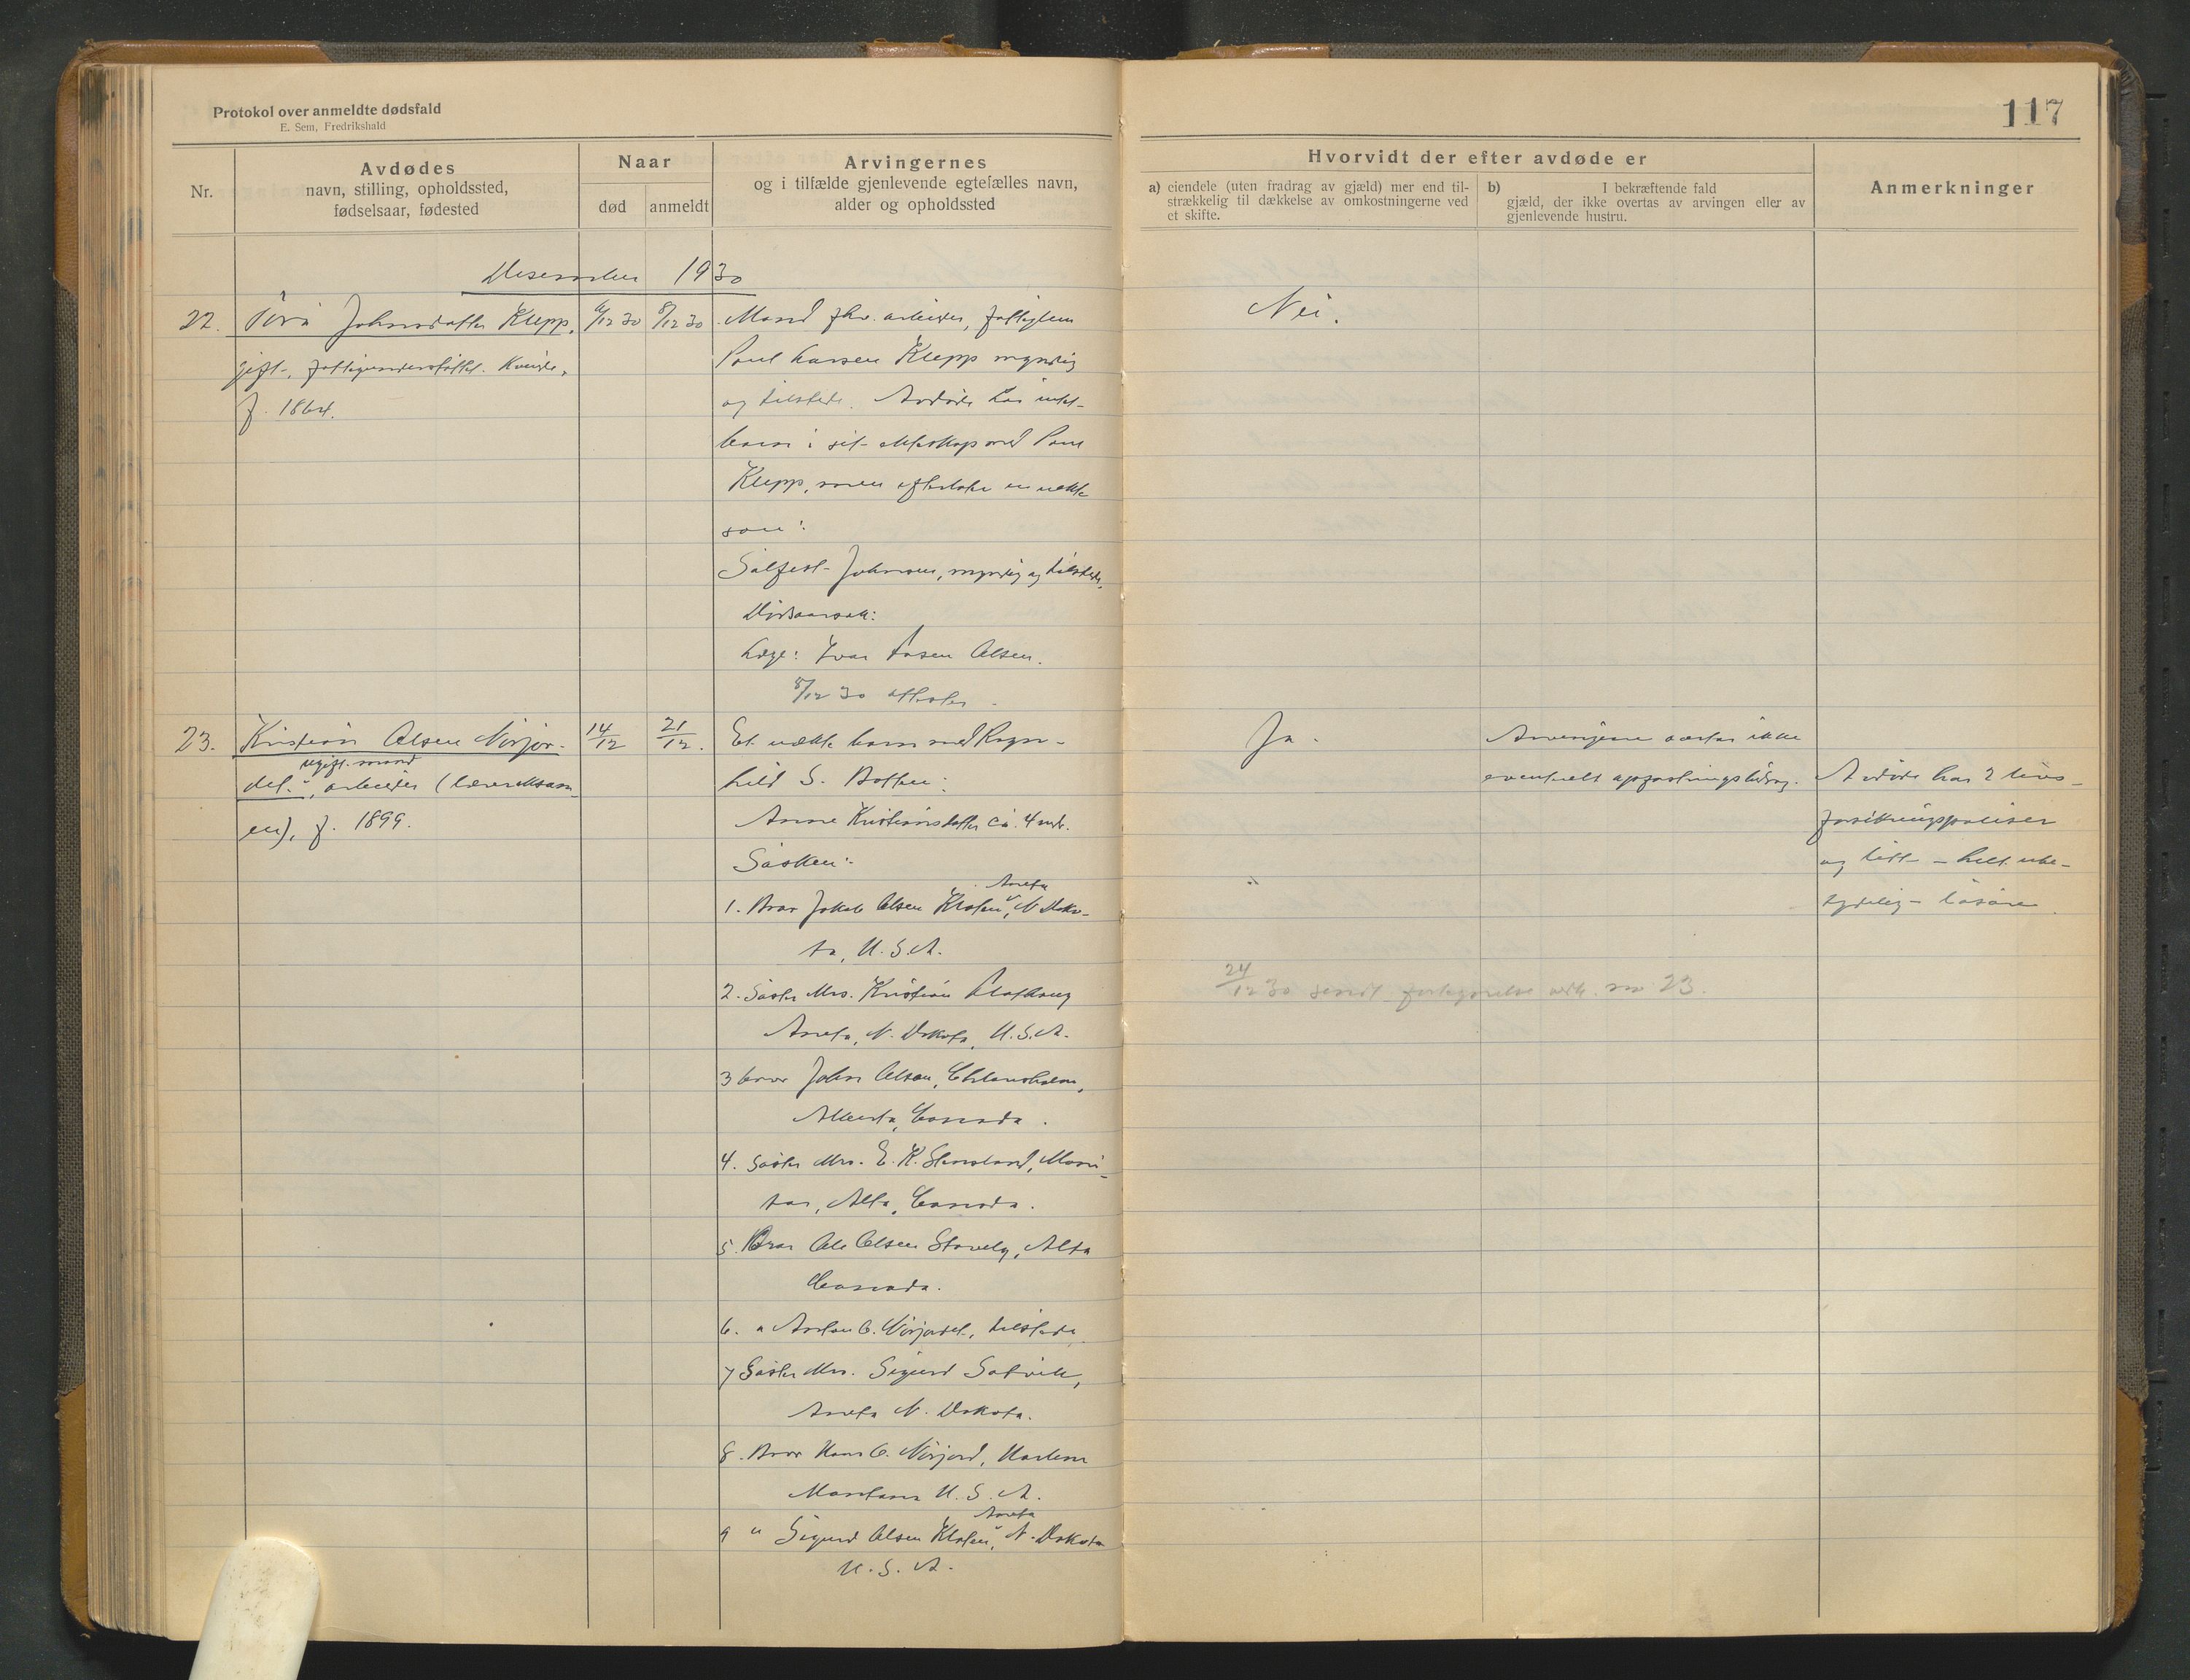 Protokol over anmeldte dødsfald
E. Sem, Fredrikshald
117
Nr.
Avdødes
navn, stilling, opholdssted,
fødselsaar, fødested
Naar
død
anmeldt
Arvingernes
og i tilfælde gjenlevende egtefælles navn,
alder og opholdssted
Hvorvidt der efter avdøde er
a) eiendele (uten fradrag av gjæld) mer end til-
strækkelig til dækkelse av omkostningerne ved
et skifte.
b) I bekræftende fald
gjæld, der ikke overtas av arvingen eller av
gjenlevende hustru.
Anmerkninger
Desember 1930
22. Johnsdatter Klepp, 6/12 30 8/12 30
gift, fattigunderstøttet. Kvinde,
f. 1864.
Mand fhv. arbeider, fattiglem
Paul Larsen Klepp myndig
og tilstede. Avdøde har intet
barn i sit ekteskap med Paul
Klepp, men efterlater en uekte
søn:
Salfest Johnsen, myndig og tilstede.
Dødsaarsak:
Læge: Ivar Aasen Olsen.
8/12 30 attester
Nei.
23. Kristian Olsen Nörjor-
det, ugift mand, arbeider (lærereksam-
en), f. 1899.
14/12 21/12.
Et uekte barn med Ragn-
hild S. Botten:
Anne Kristiansdatter ca. 4 mdr.
Søsken:
1. Bror Jakob Olsen Kloften, Aneta N Dako-
ta, U.S.A.
2. Søster Mrs. Kristian
Aneta, N. Dakota, U.S.A.
3 bror John Olsen,
Alberta, Canada.
4. Søster Mrs. E. K. Stensland,
Alta, Canada.
5. Bror Ole Olsen Stavely, Alta
Canada.
6. " Anton O. Nörjordet, tilstede
7 Søster Mrs. Sigurd Satvik,
Aneta N. Dakota.
8. Bror Hans O. Nörjord, Harlem
Montana U.S.A.
9 " Sigurd Olsen Kloften, Aneta N. Dakota
U.S.A.
Ja.
Arvingene overtar ikke
eventuelt opfostringsbidrag.
Avdøde har 2 livs-
forsikringspoliser
og litt - helt ube-
tydelig - løsøre.
24/12 30 sendt nr 23.